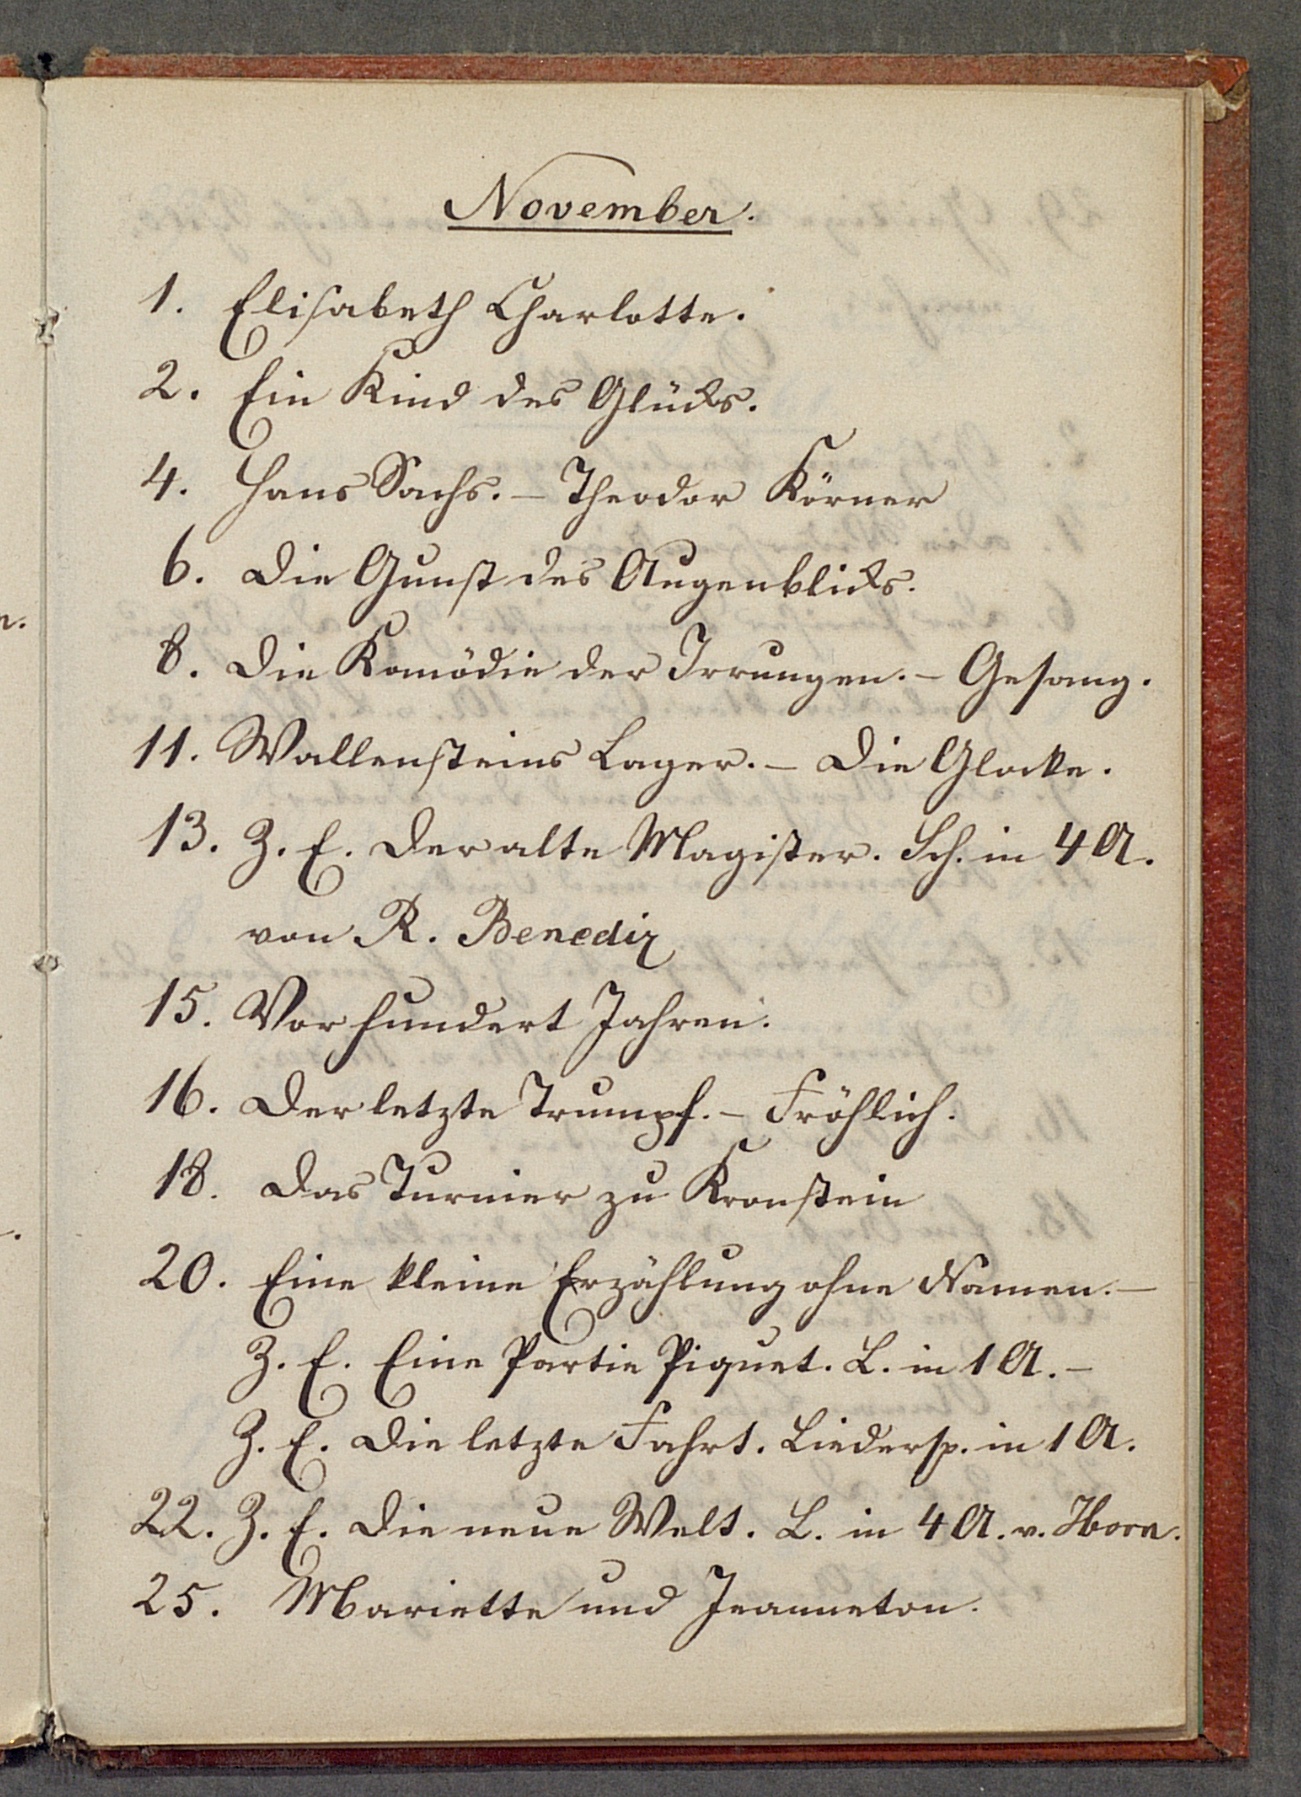 November.
1. Elisabeth Charlotte.
2. Ein Kind des Glücks.
4. Hans Sachs. – Theodor Körner
6. Die Gunst des Augenblicks.
8. Die Komödie der Irrungen. – Gesang.
11. Wallensteins Lager. – Die Glocke.
13. Z. E. Der alte Magister. Sch. in 4 A.
von R. Benedix
15. Vor hundert Jahren.
16. Der letzte Trumpf. – Fröhlich.
18. Das Turnier zu Kronstein
20. Eine kleine Erzählung ohne Namen. –
Z. E. Eine Partie Piquet. L. in 1 A. –
Z. E. Die letzte Fahrt. Liedersp. in 1 A.
22. Z. E. Die neue Welt. L. in 4 A. v. Horn.
25. Mariette und Jeanneton.